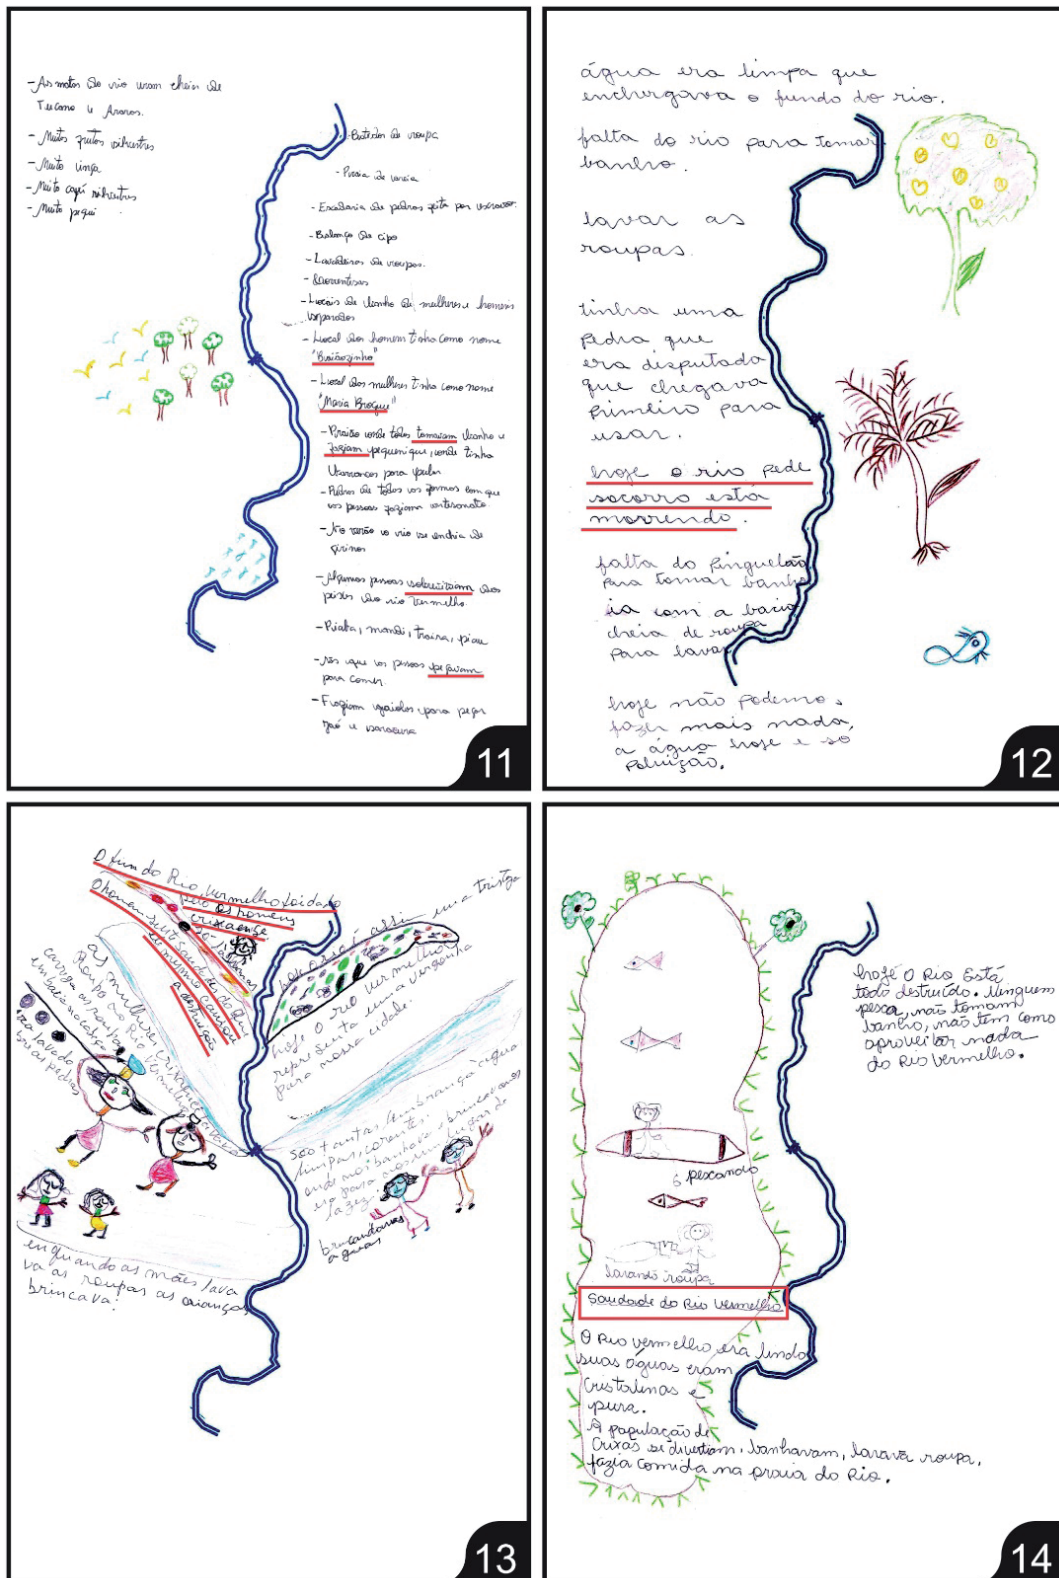 - As matas do rio eram cheia de
Tucano e Araras.
- Muitos frutos silvestres
- Muito ingá
- Muito cajú silvestres
- Muito pequi
- Batedor de roupa
- Praia de areia
- Escadaria de pedras feita por escravos
- Balanço de cipo
- Lavadeiras de roupas.
- Locais de banho de mulheres e homens
separados
- Local dos homens tinha como nome
"Buiãozinho"
- Local das mulheres tinha como nome
"Maria Broque"
- Praião onde todos tomavam banho e
faziam piquenique, onde tinha
barrancos para pular
- Pedras de todas as formas com que
as pessoas faziam artesanato
- No verão o rio se enchia de
girinos
- Algumas pessoas sobreviviam dos
peixes do rio Vermelho
- Piaba, mandi, traira, piau
- rãs que as pessoas pegavam
para comer
- Faziam gaiolas para pegar
jaó e saracura
11
água era limpa que
enchergava o fundo do rio.
falta do rio para tomar
banho.
lavar as
roupas.
tinha uma
pedra que
era disputada
que chegava
primeiro para
usar.
hoje o rio pede
socorro está
morrendo.
falta do pinguelão
para tomar banho
ia com a bacia
cheia de roupa
para lavar
hoje não podemos
fazer mais nada,
a água hoje e só
poluição.
12
O fim do Rio vermelho foi dado
pelo os homens
crixaense
O homem sente saudades do Rio
ele mesmo causou
a destruição
hoje o rio é assim uma tristeza
hoje o rio vermelho
representa uma vergonha
para nossa cidade.
as mulheres crixaense lavava
Roupa no Rio Vermelho
carrega as roupas
em bacia na cabeça
era lavado
nas pedras
são tantas lembrança água
limpas, corentes.
onde nós banhava e brincavamos
era para nós um lugar de
lazer.
brincando nas
aguas
enquando as mães lava
va as roupas as crianças
brincava.
13
hoje o Rio Está
todo destruído. Ninguem
pesca, não tomam
banho, não tem como
aproveitar nada
do Rio Vermelho.
pescando
lavando roupa
Saudade do Rio Vermelho
O Rio vermelho era lindo
suas águas eram
Cristalinas e
pura.
A população de
Crixás se divertiam, banhavam, lavava roupa,
fazia comida na praia do Rio.
14